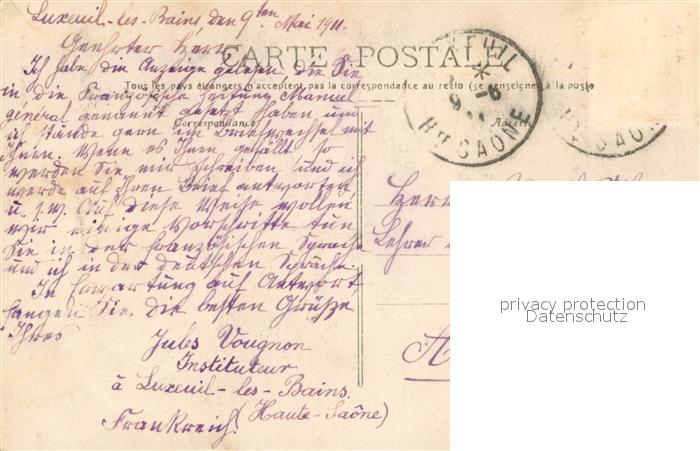 Luxeuil-les-Bains, den 9ten Mai 1911.
Geehrter Herr
CARTE POSTALE
Ich habe die Anzeige gelesen, die Sie
Tous les pays étrangers n'acceptent pas la correspondance au recto (se renseigner à la poste
in die Französische Zeitung, Manuel
général genannt gesetzt haben und
Correspondance
Adresse
stände gern im Briefwechsel mit
Ihnen. Wenn es Ihnen gefällt so
werden Sie mir schreiben und ich
werde auf Ihren Brief antworten
u. s. w. Auf diese Weise wollen
wir einige Vorschritte tun
Sie in der französischen Sprache
und ich in der deutschen Sprache.
In Erwartung auf Antwort
fangen Sie die besten Grüsse
Ihres
Jules Vougnon
Instituteur
à Luxeuil-les-Bains.
(Haute-Saône)
Frankreich.
Herrn
Lehrer
LUXEUIL
9-5
11
Hte SAONE
Hte SAONE
privacy protection
Datenschutz